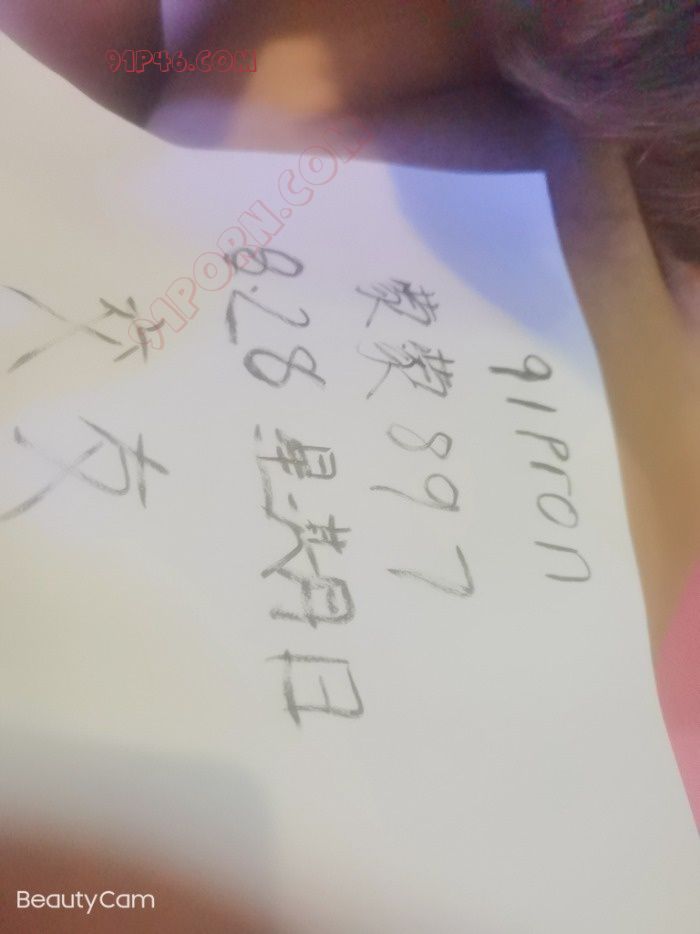 91Pron
蒙蒙897
8.28 星期日
91PORN.COM
91P46.COM
BeautyCam